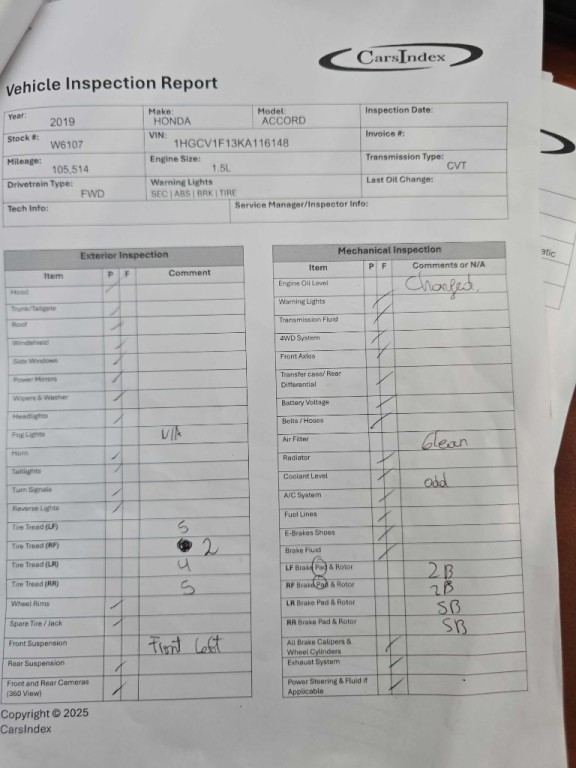 CarsIndex
Vehicle Inspection Report
Year: 2019 Make: HONDA Model: ACCORD Inspection Date:
Stock #: W6107 VIN: 1HGCV1F13KA116148 Invoice #:
Mileage: 105,514 Engine Size: 1.5L Transmission Type: CVT
Drivetrain Type: FWD Warning Lights SEC | ABS | BRK | TIRE Last Oil Change:
Tech Info: Service Manager/Inspector Info:
Exterior Inspection
Item P F Comment
Hood
Trunk/Tailgate
Roof
Windshield
Side Windows
Power Mirrors
Wipers & Washer
Headlights
Fog Lights N/A
Horn
Taillights
Turn Signals
Reverse Lights
Tire Tread (LF) 5
Tire Tread (RF) 2
Tire Tread (LR) 4
Tire Tread (RR) 5
Wheel Rims
Spare Tire / Jack
Front Suspension Front Left
Rear Suspension
Front and Rear Cameras
(360 View)
Mechanical Inspection
Item P F Comments or N/A
Engine Oil Level Changed
Warning Lights
Transmission Fluid
4WD System
Front Axles
Transfer case/ Rear
Differential
Battery Voltage
Belts / Hoses
Air Filter Clean
Radiator
Coolant Level add
A/C System
Fuel Lines
E-Brakes Shoes
Brake Fluid
LF Brake Pad & Rotor 2B
RF Brake Pad & Rotor 2B
LR Brake Pad & Rotor 5B
RR Brake Pad & Rotor 5B
All Brake Calipers &
Wheel Cylinders
Exhaust System
Power Steering & Fluid if
Applicable
Copyright © 2025
CarsIndex
atic